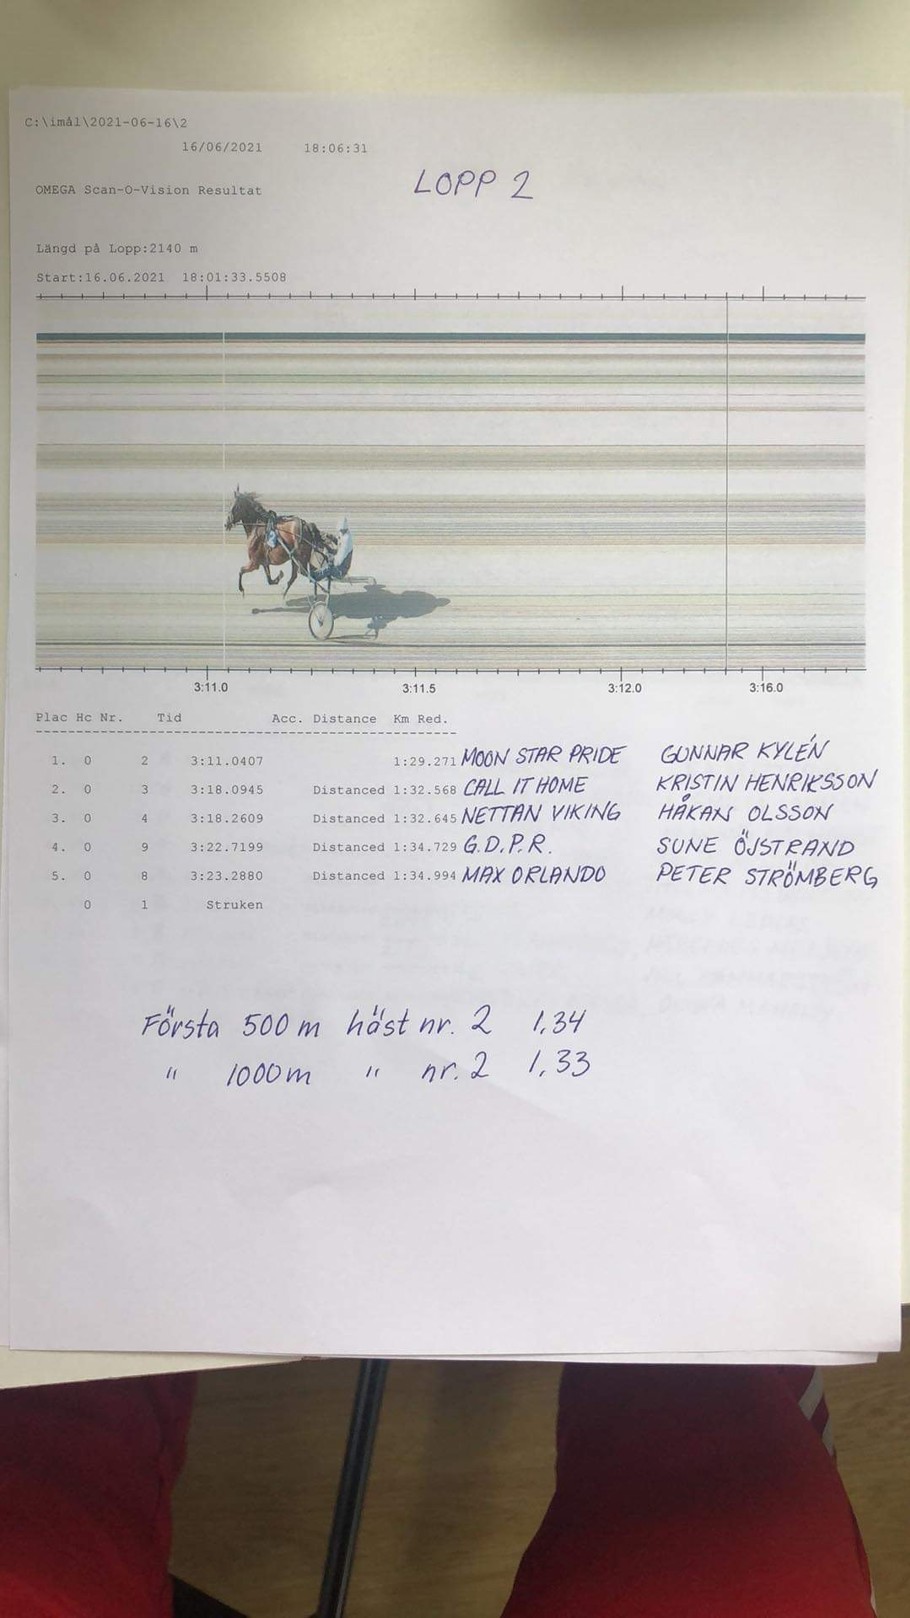 C:\imål\2021-06-16\2
16/06/2021 18:06:31
LOPP 2
OMEGA Scan-O-Vision Resultat
Längd på Lopp:2140 m
Start:16.06.2021 18:01:33.5508
3:11.0 3:11.5 3:12.0 3:16.0
Plac Hc Nr. Tid Acc. Distance Km Red.
1. 0 2 3:11.0407 1:29.271 MOON STAR PRIDE GUNNAR KYLÉN
2. 0 3 3:18.0945 Distanced 1:32.568 CALL IT HOME KRISTIN HENRIKSSON
3. 0 4 3:18.2609 Distanced 1:32.645 NETTAN VIKING HÅKAN OLSSON
4. 0 9 3:22.7199 Distanced 1:34.729 G.D.P.R. SUNE ÖJSTRAND
5. 0 8 3:23.2880 Distanced 1:34.994 MAX ORLANDO PETER STRÖMBERG
0 1 Struken
Första 500 m häst nr. 2 1,34
" 1000 m " nr. 2 1,33